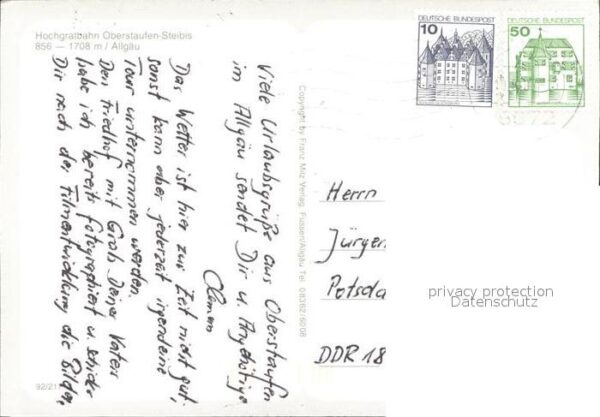 Hochgratbahn Oberstaufen-Steibis
856 — 1708 m / Allgäu
Viele Urlaubsgrüße aus Oberstaufen
im Allgäu sendet Dir u. Angehörige
Clemens
Das Wetter ist hier zur Zeit nicht gut,
sonst kann aber jederzeit irgendeine
Tour unternommen werden.
Den Friedhof mit Grab Deines Vaters
habe ich bereits fotographiert u. schicke
Dir nach der Filmentwicklung die Bilder.
92/21
Copyright by Franz Milz Verlag, Füssen/Allgäu Tel. 08362/6008
10 DEUTSCHE BUNDESPOST
50 DEUTSCHE BUNDESPOST
Herrn
Jürgen
Potsda
DDR 18
privacy protection
Datenschutz